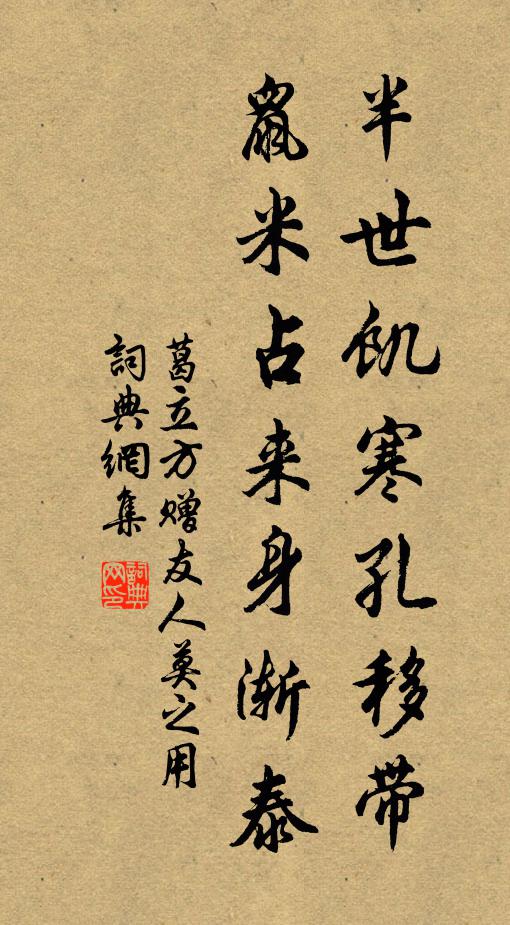 半世飢寒孔移帶
鼠米占来身渐泰
葛立方赠友人莫之用
詞典網集
詞典網印